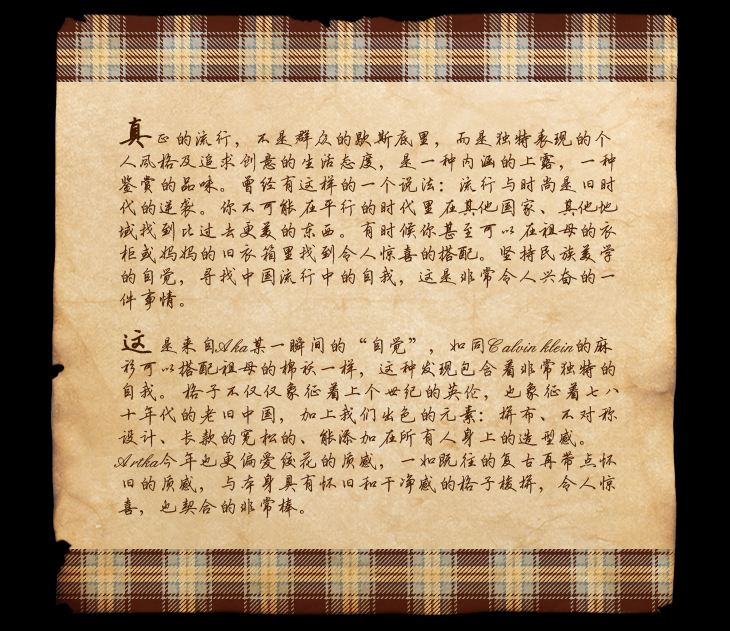 真正的流行，不是群众的歇斯底里，而是独特表现的个
人风格及追求创意的生活态度，是一种内涵的上露，一种
鉴赏的品味。曾经有这样的一个说法：流行与时尚是旧时
代的逆袭。你不可能在平行的时代里在其他国家、其他地
域找到比过去更美的东西。有时候你甚至可以在祖母的衣
柜或妈妈的旧衣箱里找到令人惊喜的搭配。坚持民族美学
的自觉，寻找中国流行中的自我，这是非常令人兴奋的一
件事情。
这是来自Aka某一瞬间的“自觉”，如同Calvin klein的麻
衫可以搭配祖母的棉袄一样，这种发现包含着非常独特的
自我。格子不仅仅象征着上个世纪的英伦，也象征着七八
十年代的老旧中国，加上我们出色的元素：拼布、不对称
设计、长款的宽松的、能添加在所有人身上的造型感。
Artka今年也更偏爱绞花的质感，一如既往的复古再带点怀
旧的质感，与本身具有怀旧和干净感的格子梭拼，令人惊
喜，也契合的非常棒。